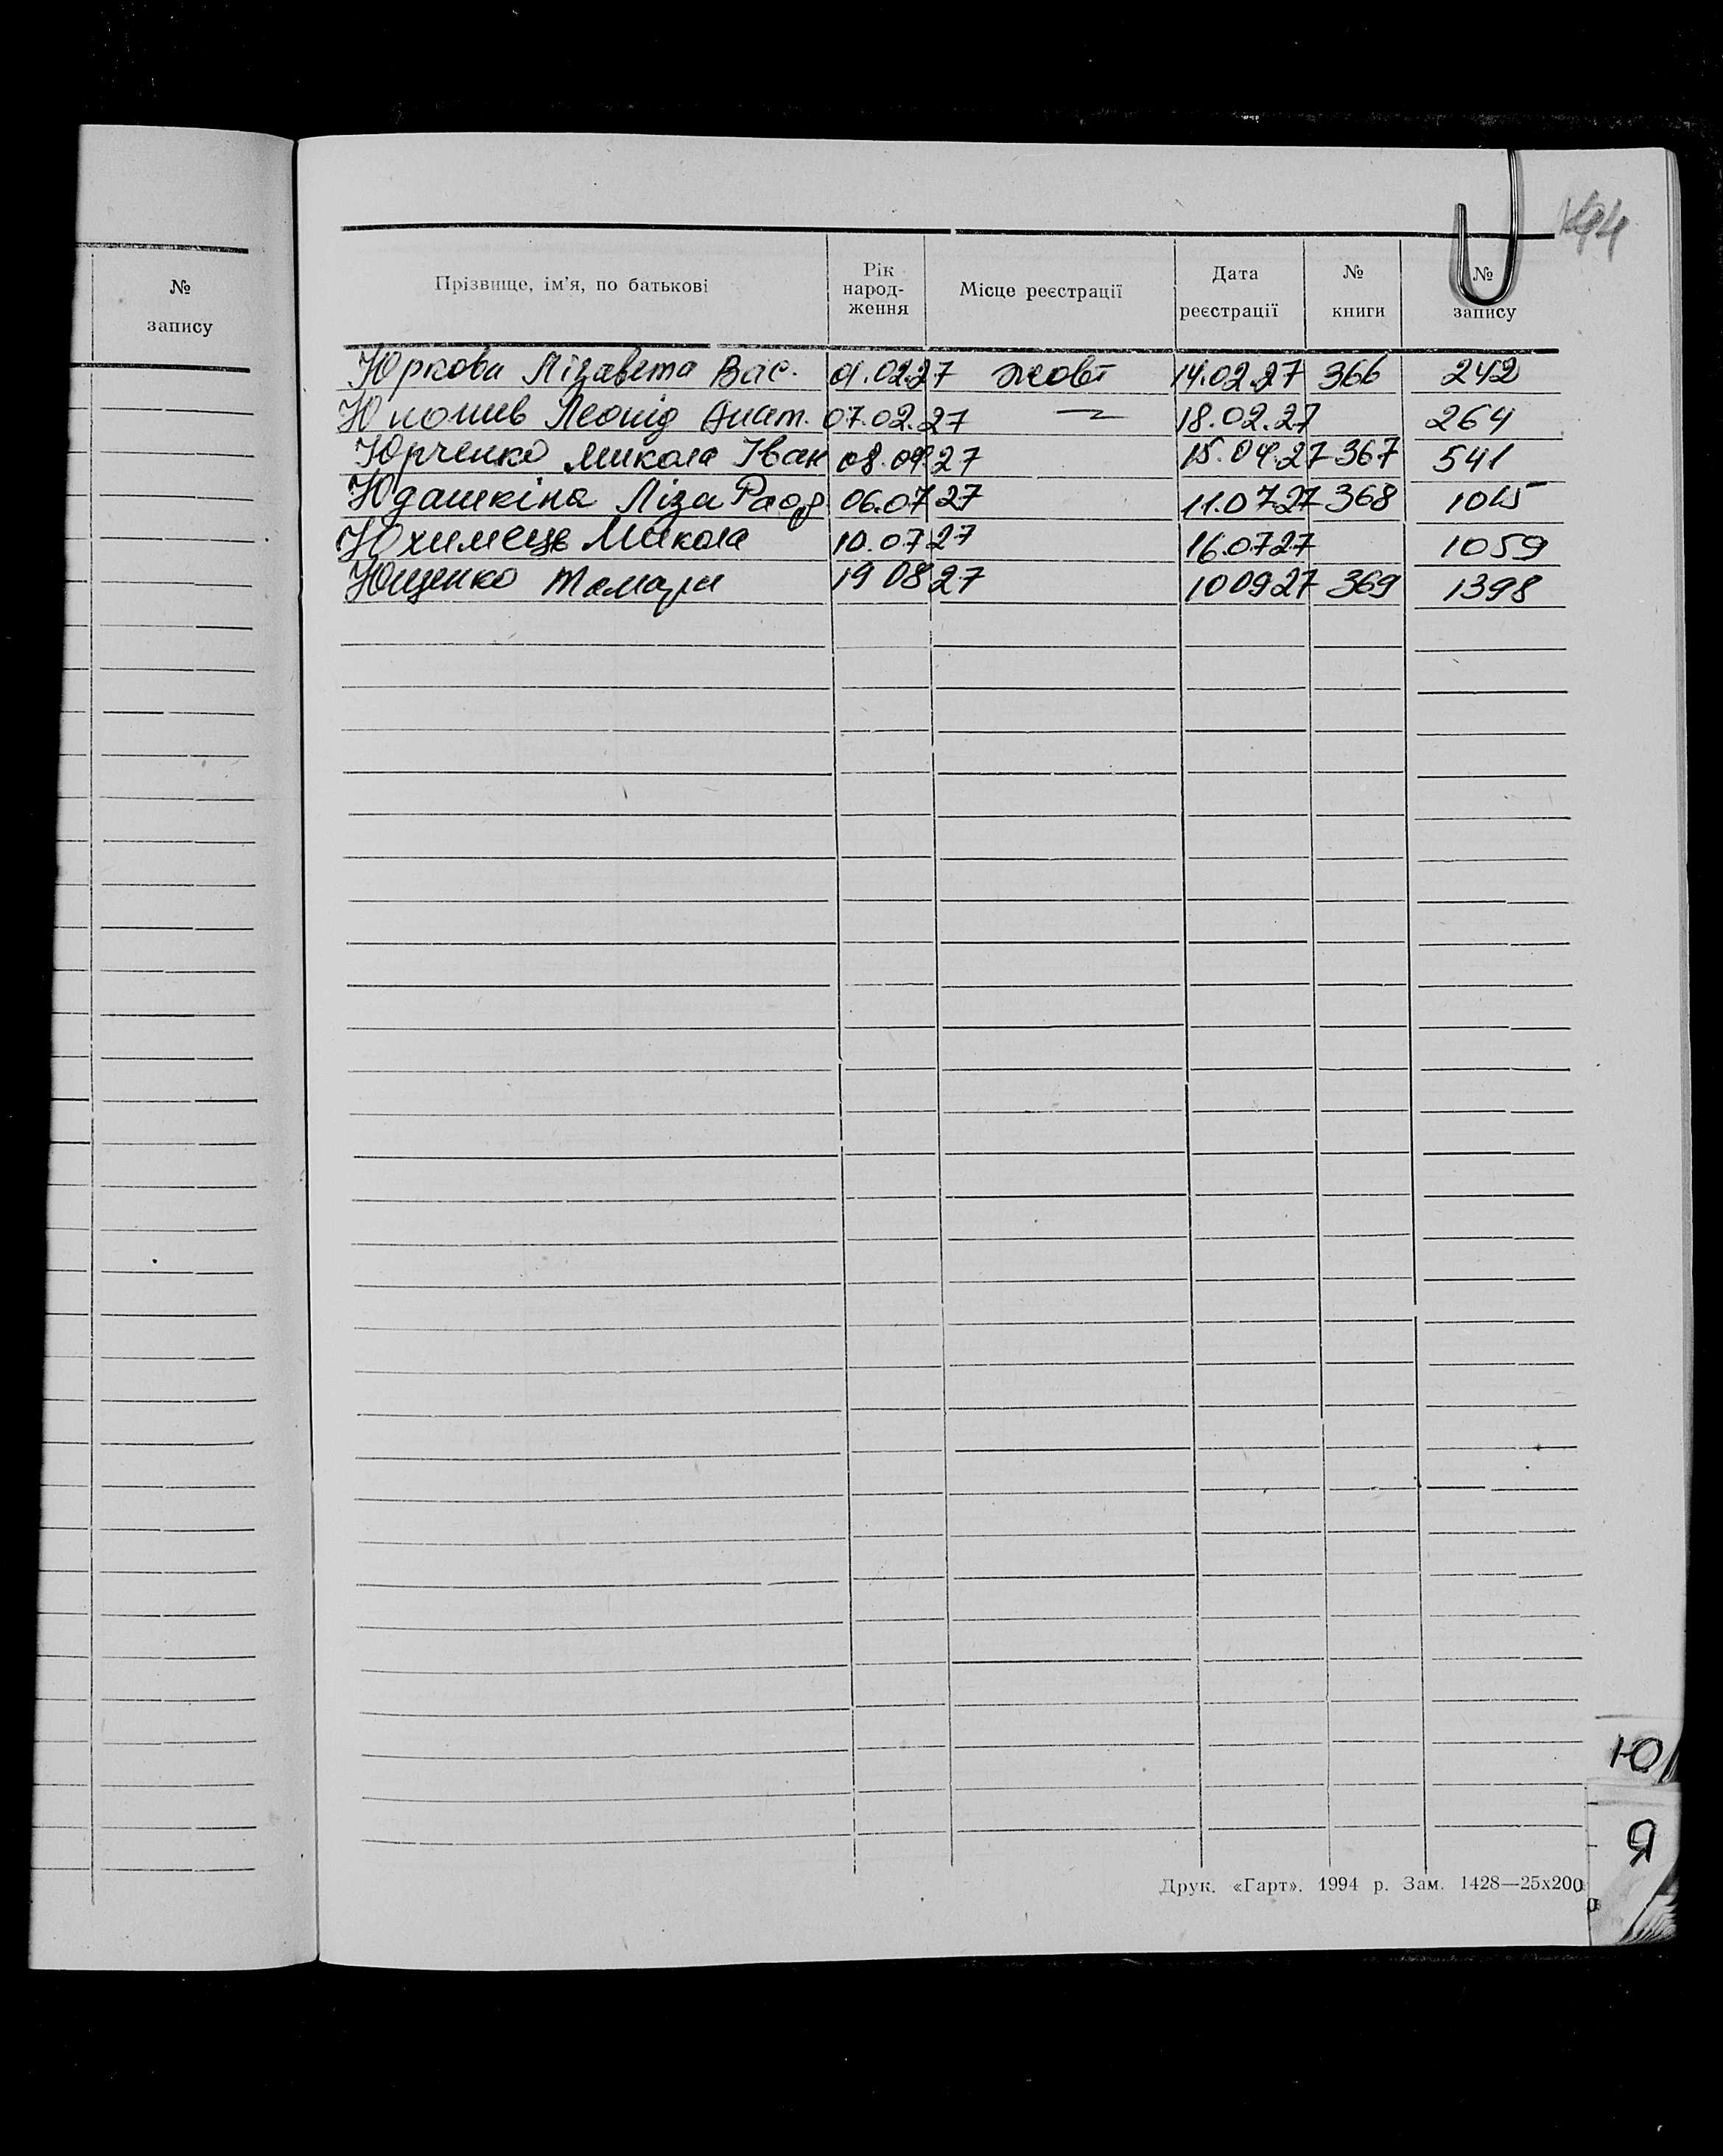 №
запису
494
Прізвище, ім'я, по батькові Рік народ-ження Місце реєстрації Дата реєстрації № книги № запису
Юркова Лізавета Вас. 01.02.27 Жовт 14.02.27 366 242
Леонід Анат. 07.02.27 —〃— 18.02.27 264
Юрченко Микола Іван 08.04.27 15.04.27 367 541
Юдашкіна Ліза 06.07.27 11.07.27 368 1015
Юхимець Микола 10.07.27 16.07.27 1059
Ющенко Тамара 19 08 27 10 09 27 369 1398
Ю
Я
Друк. «Гарт». 1994 р. Зам. 1428—25х200